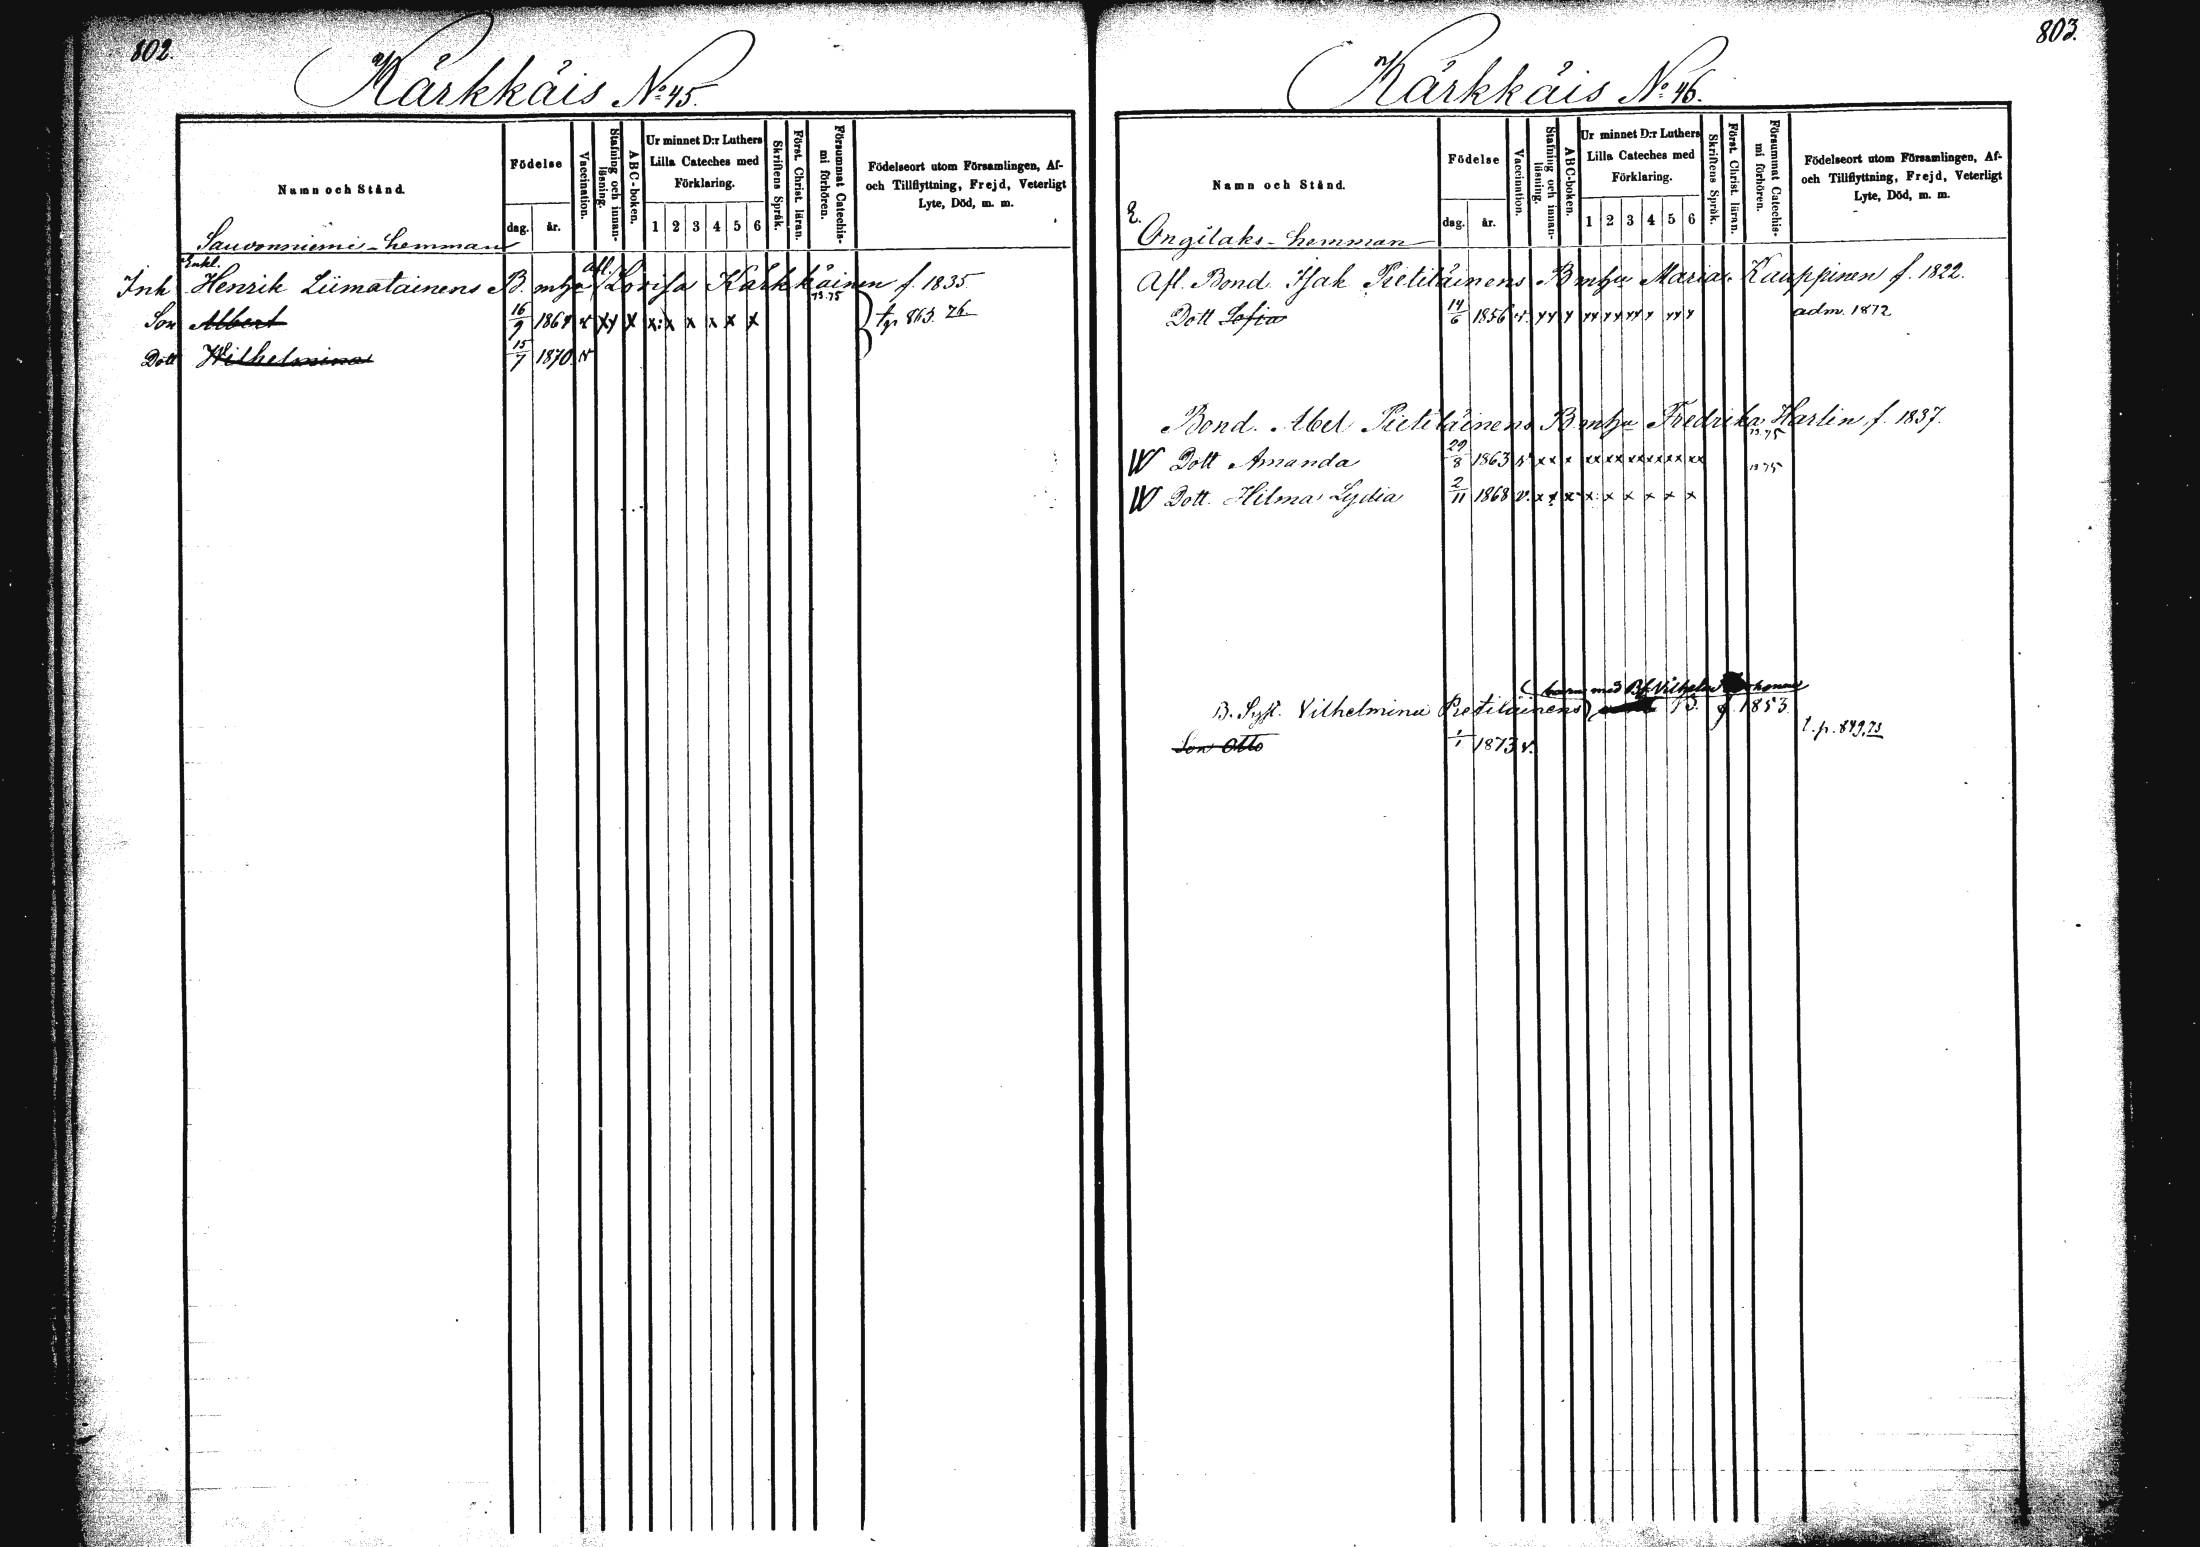 802.
Kärkkäis No 45.
Namn och Stånd.
Födelse
dag.
år.
Vaccination.
Stafning och innan-
läsning.
ABC-boken.
Ur minnet D:r Luthers
Lilla Cateches med
Förklaring.
1 2 3 4 5 6
Skriftens Språk.
Först. Christ. läran.
Försummat Catechis-
mi förhören.
Födelseort utom Församlingen, Af-
och Tillflyttning, Frejd, Veterligt
Lyte, Död, m. m.
Sauvonniemi-hemman
Enkl.
Inh Henrik Liimatainens B. mhu afl. Lovisa Kärkkäinen f. 1835
73.75
Son Albert 16/9 1864 v xy x x:x x x x x
tp 863. 76.
Dott Wilhelmina 15/7 1870 v
803.
Kärkkäis No 46.
Namn och Stånd.
Födelse
dag.
år.
Vaccination.
Stafning och innan-
läsning.
ABC-boken.
Ur minnet D:r Luthers
Lilla Cateches med
Förklaring.
1 2 3 4 5 6
Skriftens Språk.
Först. Christ. läran.
Försummat Catechis-
mi förhören.
Födelseort utom Församlingen, Af-
och Tillflyttning, Frejd, Veterligt
Lyte, Död, m. m.
Ongilaks-hemman
Afl. Bond. Isak Pietiläinens B mhu Maria Kauppinen f. 1822.
Dott Sofia 14/6 1856 v. yy y yy yy yy y yy y adm. 1872
Bond. Abel Pietiläinens B mhu Fredrika Hartin f. 1837.
73.75
W Dott Amanda 29/8 1863 v xx x xx xx xx xx xx xx 73 75
W Dott. Hilma Lydia 2/11 1868 v. x x x x x x x x x
barn med Bf. Vilhelm
B. Syst. Vilhelmina Pietiläinens B. f. 1853
t.p. 849.73
Son Otto 1/1 1873 v.